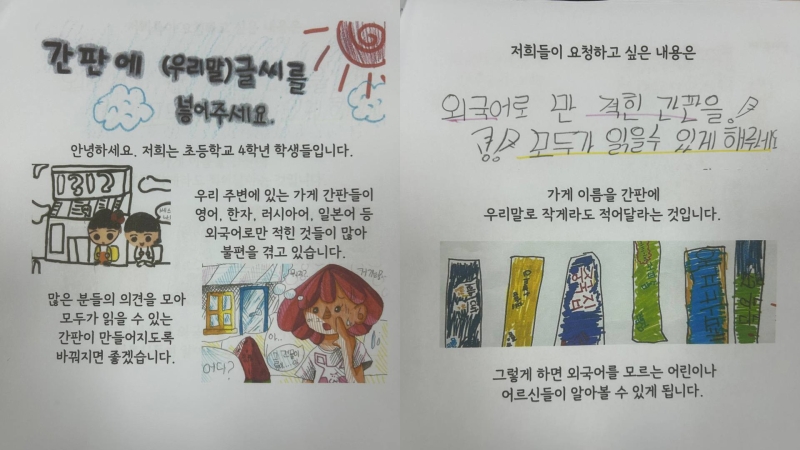 간판에 (우리말)글씨를
넣어주세요.
안녕하세요. 저희는 초등학교 4학년 학생들입니다.
우리 주변에 있는 가게 간판들이
영어, 한자, 러시아어, 일본어 등
외국어로만 적힌 것들이 많아
불편을 겪고 있습니다.
많은 분들의 의견을 모아
모두가 읽을 수 있는
간판이 만들어지도록
바꿔지면 좋겠습니다.
어디?
저희들이 요청하고 싶은 내용은
외국어로 만 적힌 간판을!
모두가 읽을수 있게 해줘세요
가게 이름을 간판에
우리말로 작게라도 적어달라는 것입니다.
중국집
그렇게 하면 외국어를 모르는 어린이나
어르신들이 알아볼 수 있게 됩니다.